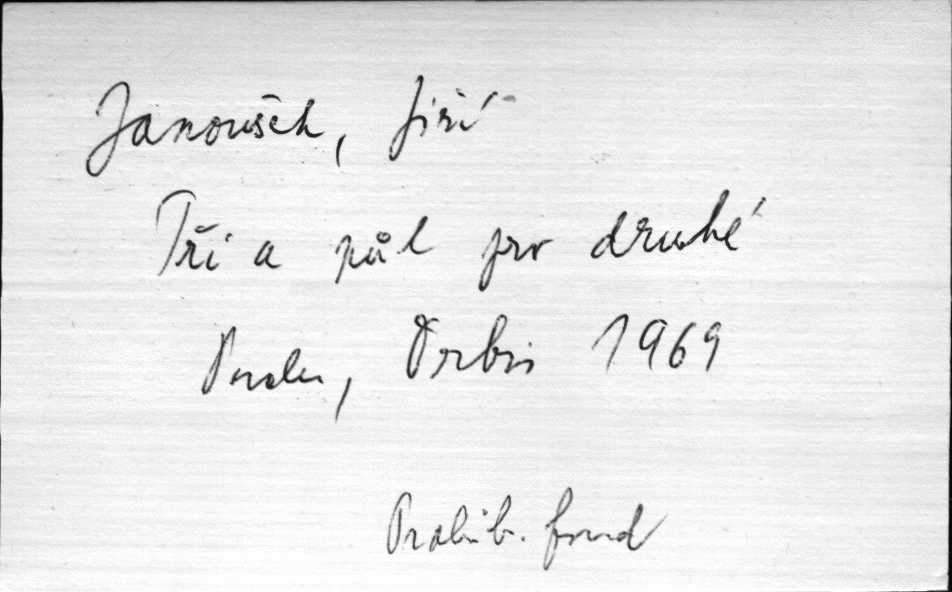 Janoušek, Jiří
Tři a půl pro druhé
Praha, Orbis 1969
Prohib. fond